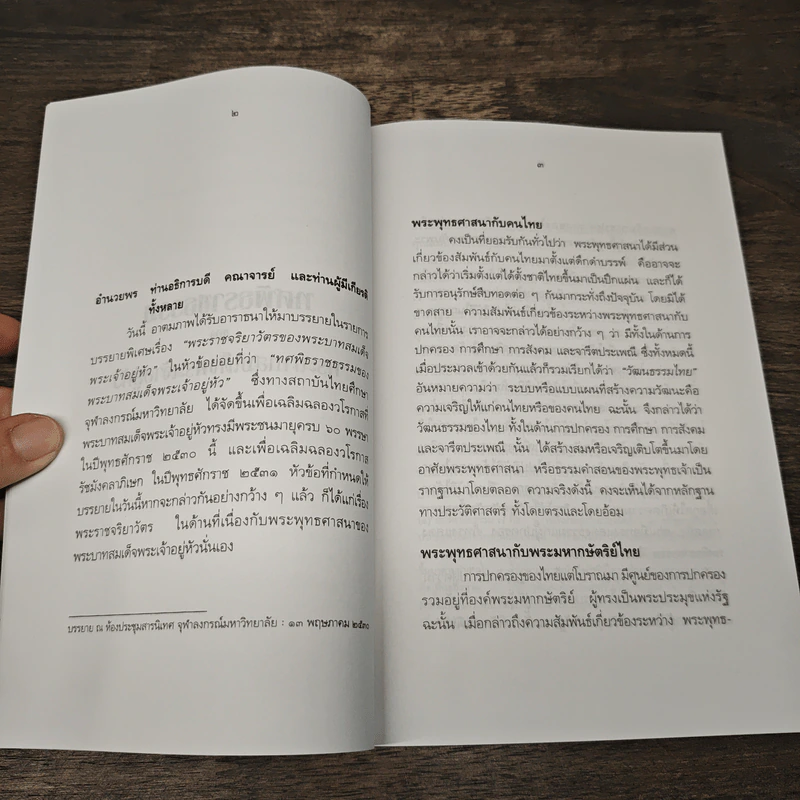 ๒
อำนวยพร ท่านอธิการบดี คณาจารย์ และท่านผู้มีเกียรติ
ทั้งหลาย
วันนี้ อาตมภาพได้รับอาราธนาให้มาบรรยายในรายการ
บรรยายพิเศษเรื่อง "พระราชจริยาวัตรของพระบาทสมเด็จ
พระเจ้าอยู่หัว" ในหัวข้อย่อยที่ว่า "ทศพิธราชธรรมของ
พระบาทสมเด็จพระเจ้าอยู่หัว" ซึ่งทางสถาบันไทยศึกษา
จุฬาลงกรณ์มหาวิทยาลัย ได้จัดขึ้นเพื่อเฉลิมฉลองวโรกาสที่
พระบาทสมเด็จพระเจ้าอยู่หัวทรงมีพระชนมายุครบ ๖๐ พรรษา
ในปีพุทธศักราช ๒๕๓๐ นี้ และเพื่อเฉลิมฉลองวโรกาส
รัชมังคลาภิเษก ในปีพุทธศักราช ๒๕๓๑ หัวข้อที่กำหนดให้
บรรยายในวันนี้หากจะกล่าวกันอย่างกว้าง ๆ แล้ว ก็ได้แก่เรื่อง
พระราชจริยาวัตร ในด้านที่เนื่องกับพระพุทธศาสนาของ
พระบาทสมเด็จพระเจ้าอยู่หัวนั่นเอง
บรรยาย ณ ห้องประชุมสารนิเทศ จุฬาลงกรณ์มหาวิทยาลัย : ๑๓ พฤษภาคม ๒๕๓๐
๓
พระพุทธศาสนากับคนไทย
คงเป็นที่ยอมรับกันทั่วไปว่า พระพุทธศาสนาได้มีส่วน
เกี่ยวข้องสัมพันธ์กับคนไทยมาตั้งแต่ดึกดำบรรพ์ คืออาจจะ
กล่าวได้ว่าเริ่มตั้งแต่ได้ตั้งชาติไทยขึ้นมาเป็นปึกแผ่น และก็ได้
รับการอนุรักษ์สืบทอดต่อ ๆ กันมากระทั่งถึงปัจจุบัน โดยมิได้
ขาดสาย ความสัมพันธ์เกี่ยวข้องระหว่างพระพุทธศาสนากับ
คนไทยนั้น เราอาจจะกล่าวได้อย่างกว้าง ๆ ว่า มีทั้งในด้านการ
ปกครอง การศึกษา การสังคม และจารีตประเพณี ซึ่งทั้งหมดนี้
เมื่อประมวลเข้าด้วยกันแล้วก็รวมเรียกได้ว่า "วัฒนธรรมไทย"
อันหมายความว่า ระบบหรือแบบแผนที่สร้างความวัฒนะคือ
ความเจริญให้แก่คนไทยหรือของคนไทย ฉะนั้น จึงกล่าวได้ว่า
วัฒนธรรมของไทย ทั้งในด้านการปกครอง การศึกษา การสังคม
และจารีตประเพณี นั้น ได้สร้างสมหรือเจริญเติบโตขึ้นมาโดย
อาศัยพระพุทธศาสนา หรือธรรมคำสอนของพระพุทธเจ้าเป็น
รากฐานมาโดยตลอด ความจริงดังนี้ คงจะเห็นได้จากหลักฐาน
ทางประวัติศาสตร์ ทั้งโดยตรงและโดยอ้อม
พระพุทธศาสนากับพระมหากษัตริย์ไทย
การปกครองของไทยแต่โบราณมา มีศูนย์ของการปกครอง
รวมอยู่ที่องค์พระมหากษัตริย์ ผู้ทรงเป็นพระประมุขแห่งรัฐ
ฉะนั้น เมื่อกล่าวถึงความสัมพันธ์เกี่ยวข้องระหว่าง พระพุทธ-